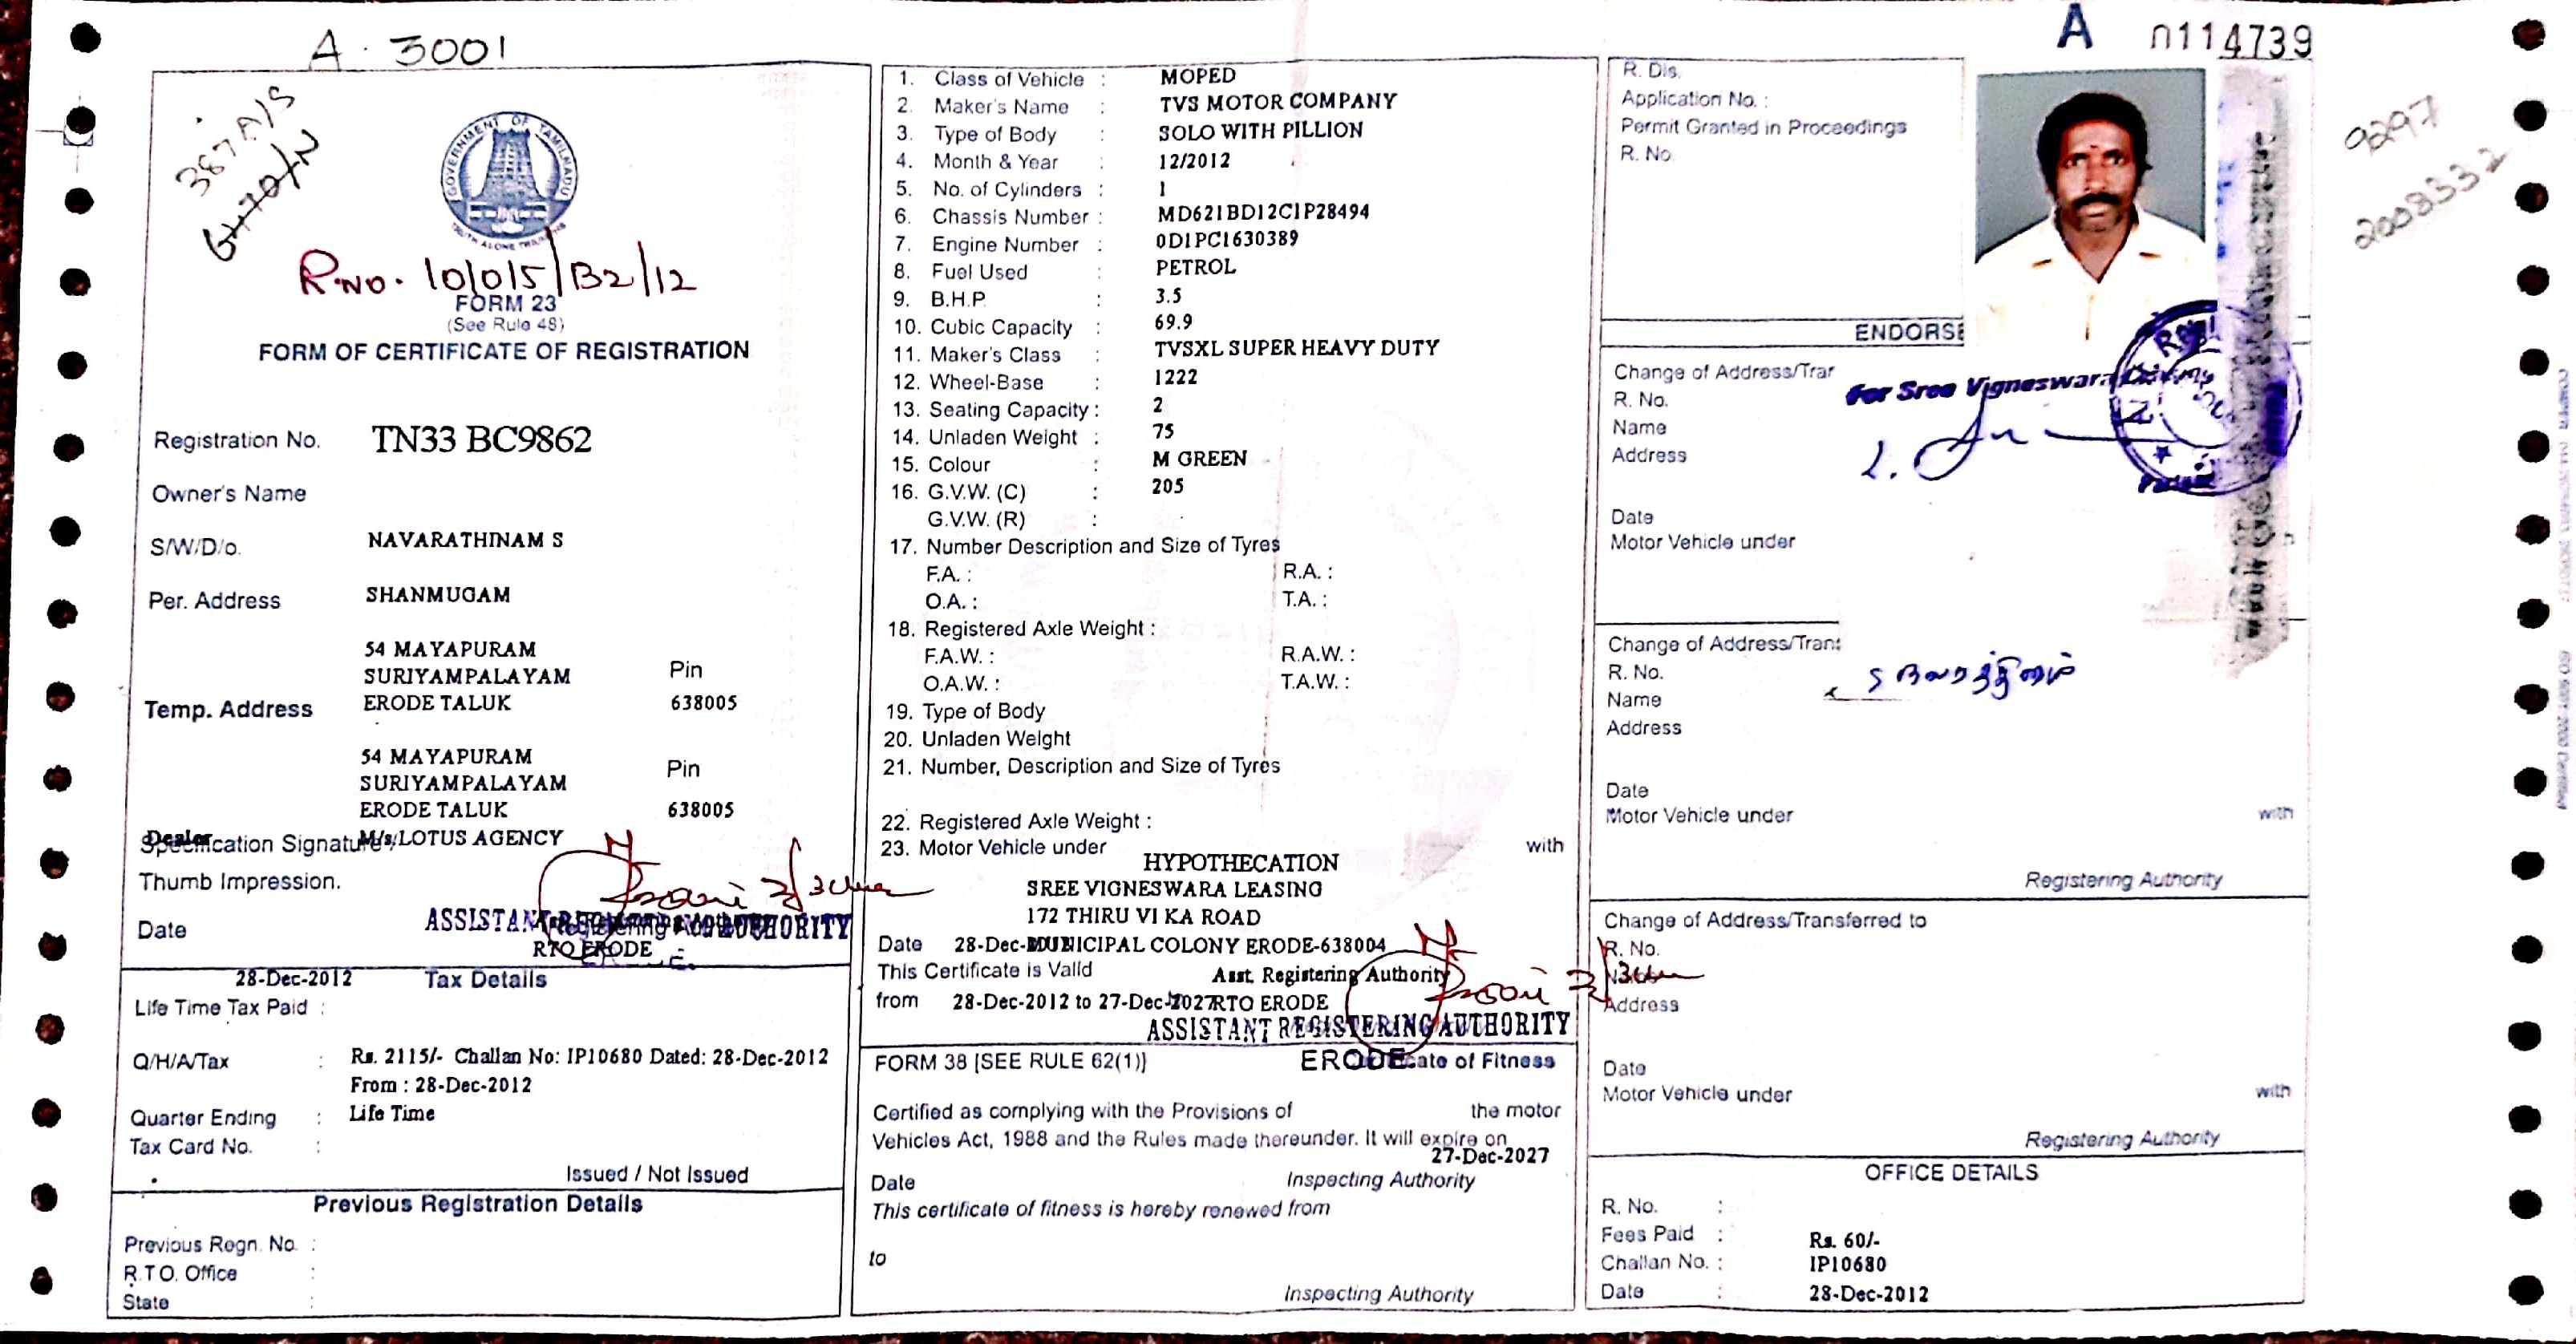 A. 3001
A 0114739
387A/S
9297
2008332
GOVERNMENT OF TAMILNADU
R.NO. 10015/B2/12
FORM 23
(See Rule 48)
FORM OF CERTIFICATE OF REGISTRATION
Registration No. TN33 BC9862
Owner's Name
S/W/D/o. NAVARATHINAM S
Per. Address SHANMUGAM
54 MAYAPURAM
SURIYAMPALAYAM Pin
Temp. Address ERODE TALUK 638005
54 MAYAPURAM
SURIYAMPALAYAM Pin
ERODE TALUK 638005
Dealer M/s LOTUS AGENCY
Specification Signature/
Thumb Impression.
Date ASSISTANT REGISTERING AUTHORITY
RTO ERODE
28-Dec-2012 Tax Details
Life Time Tax Paid :
Q/H/A/Tax : Rs. 2115/- Challan No: IP10680 Dated: 28-Dec-2012
From : 28-Dec-2012
Quarter Ending : Life Time
Tax Card No. :
Issued / Not Issued
Previous Registration Details
Previous Regn. No. :
R.T.O. Office :
State :
1. Class of Vehicle : MOPED
2. Maker's Name : TVS MOTOR COMPANY
3. Type of Body : SOLO WITH PILLION
4. Month & Year : 12/2012
5. No. of Cylinders : 1
6. Chassis Number : MD621BD12C1P28494
7. Engine Number : 0D1PC1630389
8. Fuel Used : PETROL
9. B.H.P. : 3.5
10. Cubic Capacity : 69.9
11. Maker's Class : TVSXL SUPER HEAVY DUTY
12. Wheel-Base : 1222
13. Seating Capacity : 2
14. Unladen Weight : 75
15. Colour : M GREEN
16. G.V.W. (C) : 205
G.V.W. (R) :
17. Number Description and Size of Tyres
F.A. : R.A. :
O.A. : T.A. :
18. Registered Axle Weight :
F.A.W. : R.A.W. :
O.A.W. : T.A.W. :
19. Type of Body
20. Unladen Weight
21. Number, Description and Size of Tyres
22. Registered Axle Weight :
23. Motor Vehicle under with
HYPOTHECATION
SREE VIGNESWARA LEASING
172 THIRU VI KA ROAD
Date 28-Dec- MUNICIPAL COLONY ERODE-638004
This Certificate is Valid Asst. Registering Authority
from 28-Dec-2012 to 27-Dec-2027 RTO ERODE
ASSISTANT REGISTERING AUTHORITY
ERODE
FORM 38 [SEE RULE 62(1)] Certificate of Fitness
Certified as complying with the Provisions of the motor
Vehicles Act, 1988 and the Rules made thereunder. It will expire on
27-Dec-2027
Date Inspecting Authority
This certificate of fitness is hereby renewed from
to
Inspecting Authority
R. Dis.
Application No. :
Permit Granted in Proceedings
R. No.
ENDORSE
Change of Address/Tran
R. No.
Name
Address
For Sree Vigneswara
Date
Motor Vehicle under
Change of Address/Trans
R. No.
Name
Address
S நவரத்தினம்
Date
Motor Vehicle under with
Registering Authority
Change of Address/Transferred to
R. No.
Name
Address
Date
Motor Vehicle under with
Registering Authority
OFFICE DETAILS
R. No. :
Fees Paid : Rs. 60/-
Challan No. : IP10680
Date : 28-Dec-2012